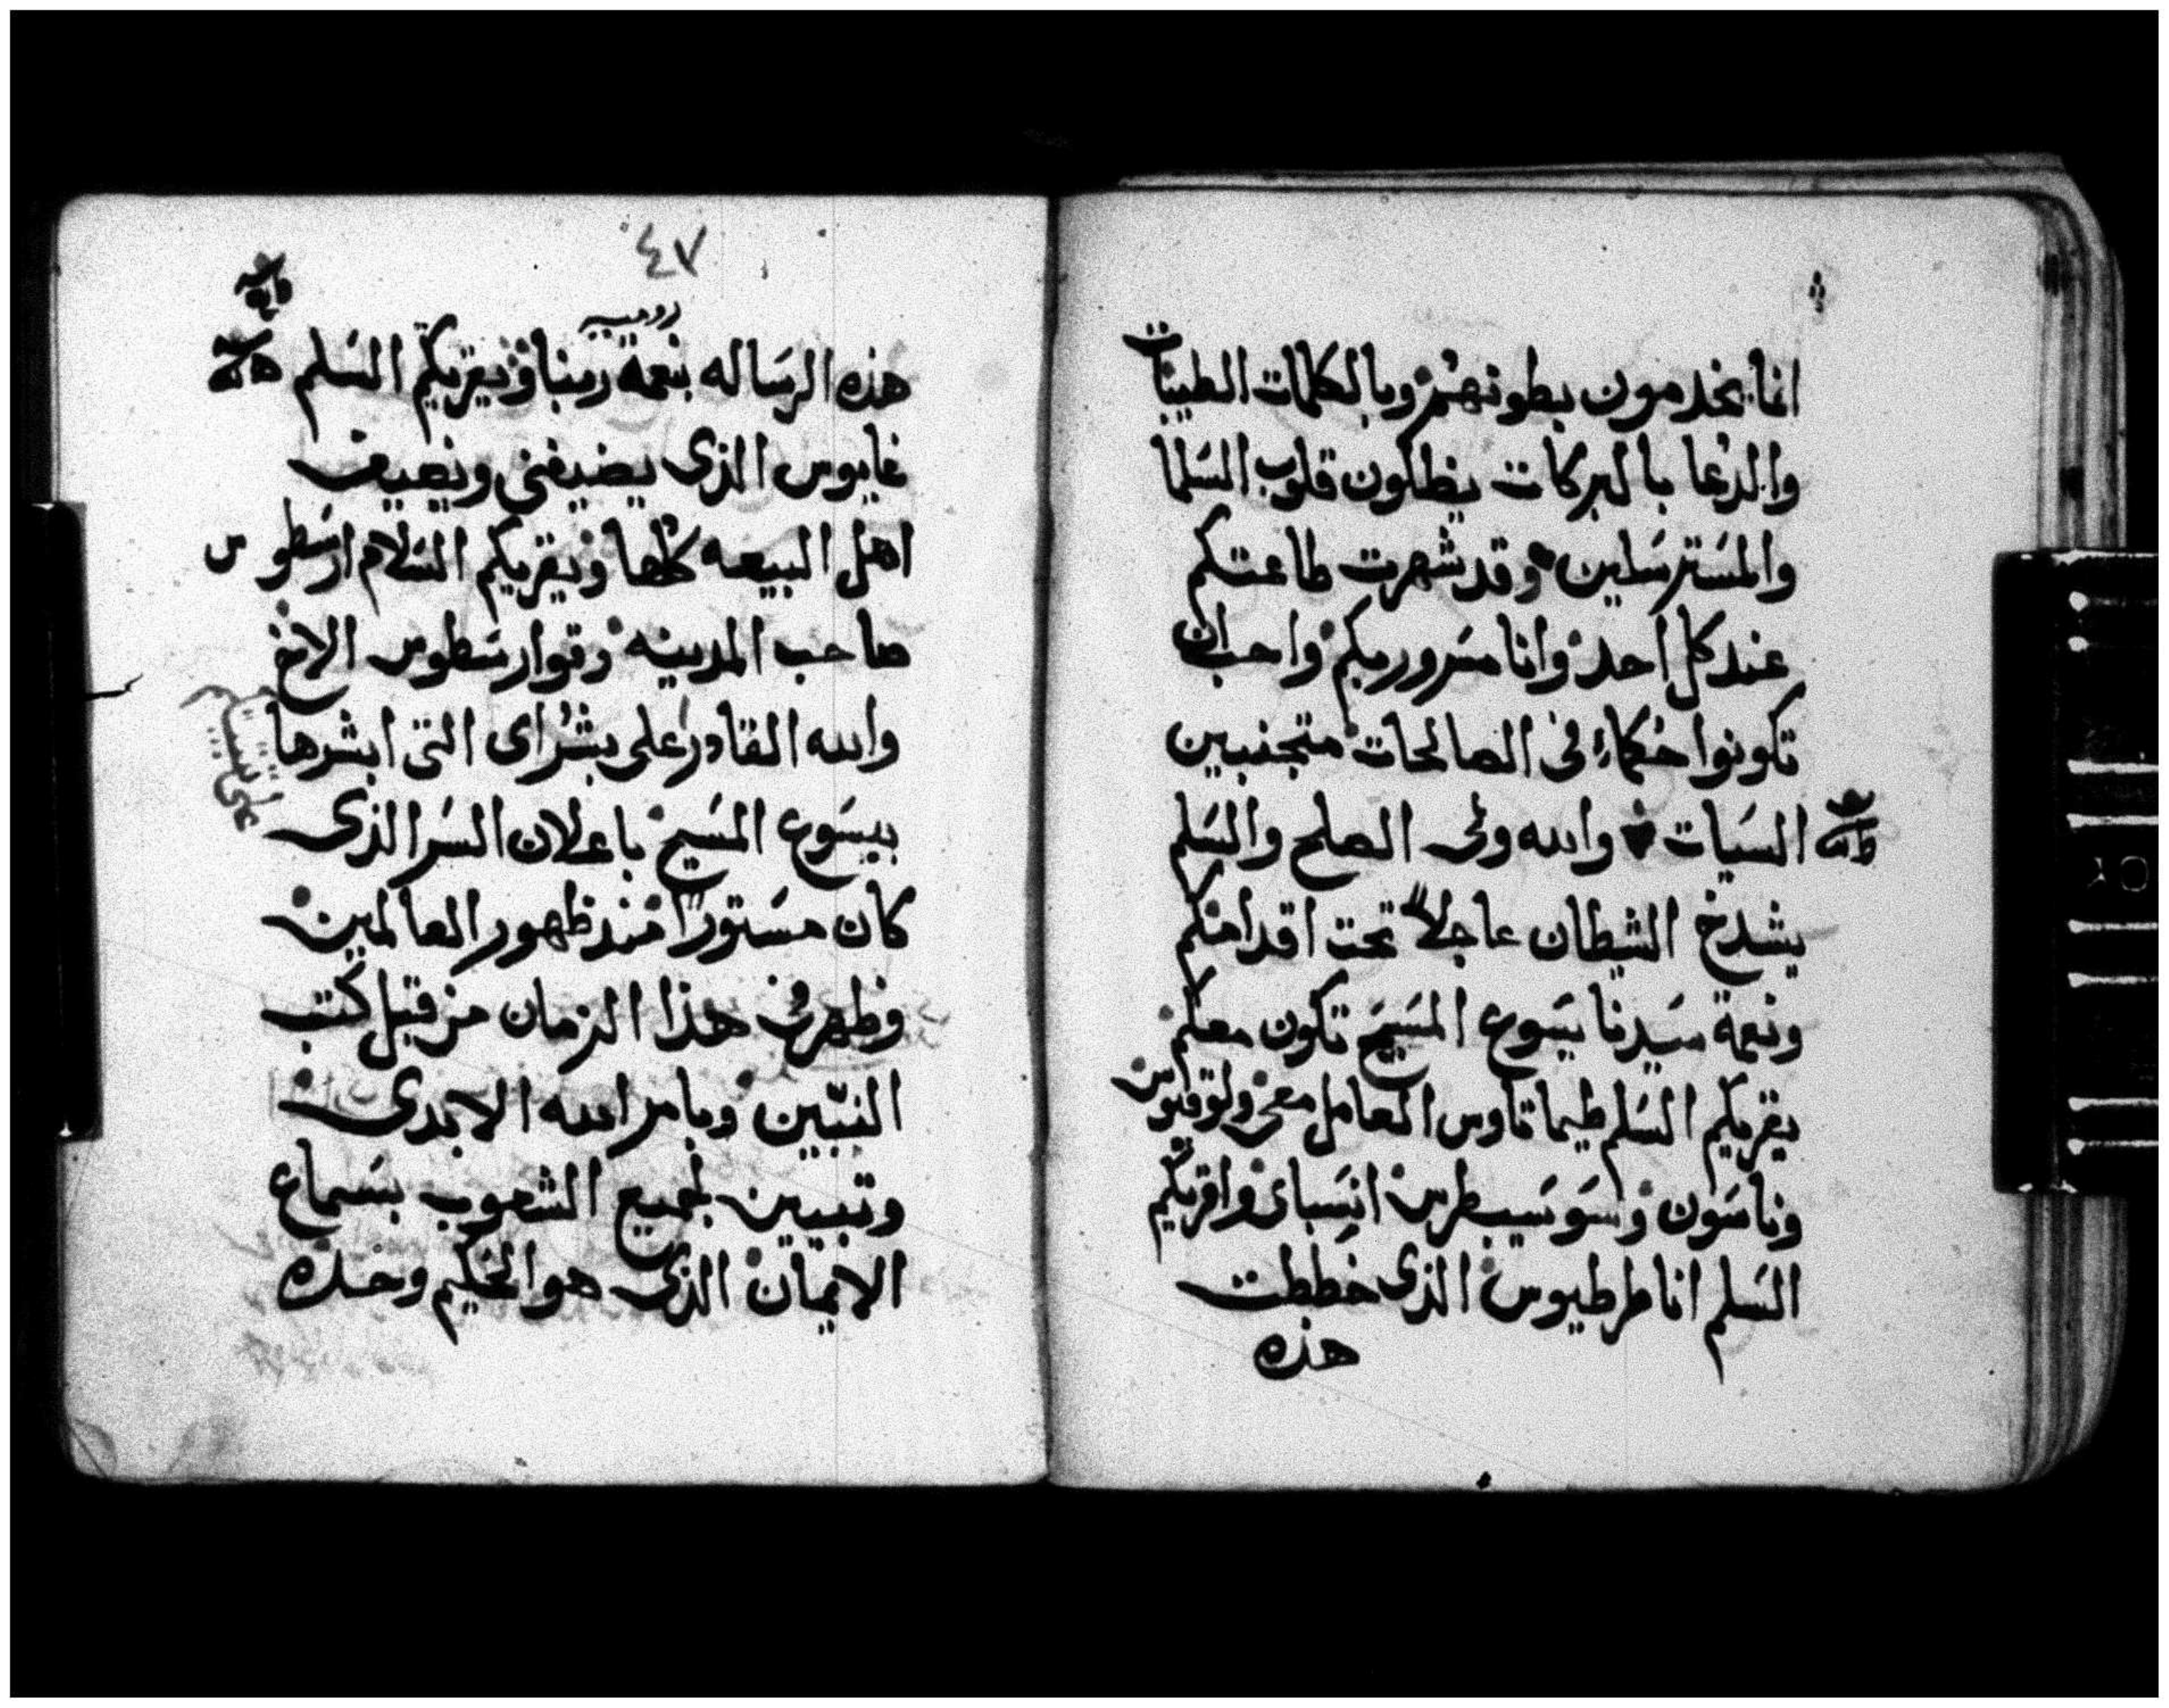 انما يخدمون بطونهم وبالكلمات الطيبات
والدعا بالبركات يظلون قلوب السلما
والمسترسلين وقد شهرت طاعتكم
عند كل احد وانا مسرور بكم واحب ان
تكونوا حكماء في الصالحات متجنبين
السيات والله ولى الصلح والسلم
يشدخ الشيطان عاجلاً تحت اقدامكم
ونعمة سيدنا يسوع المسيح تكون معكم
يقريكم السلم طيماتاوس العامل معى ولوقيوس
وناسون وسوسيبطرس انسباى واقريكم
السلم انا طرطيوس الذى خططت
هذه
٤٧
روميه
هذه الرساله بنعمة ربنا ويقريكم السلم
غايوس الذى يضيفنى ويضيف
اهل البيعه كلها ويقريكم السلام ارسطوس
صاحب المدينه وقوارسطوس الاخ
والله القادر على بشراى التى ابشرها
بيسوع المسيح باعلان السر الذى
كان مستوراً منذ ظهور العالمين
وظهر فى هذا الزمان من قبل كتب
النبيين وبامر الله الابدى
وتبيين لجميع الشعوب بسماع
الايمان الذى هو الحكيم وحده